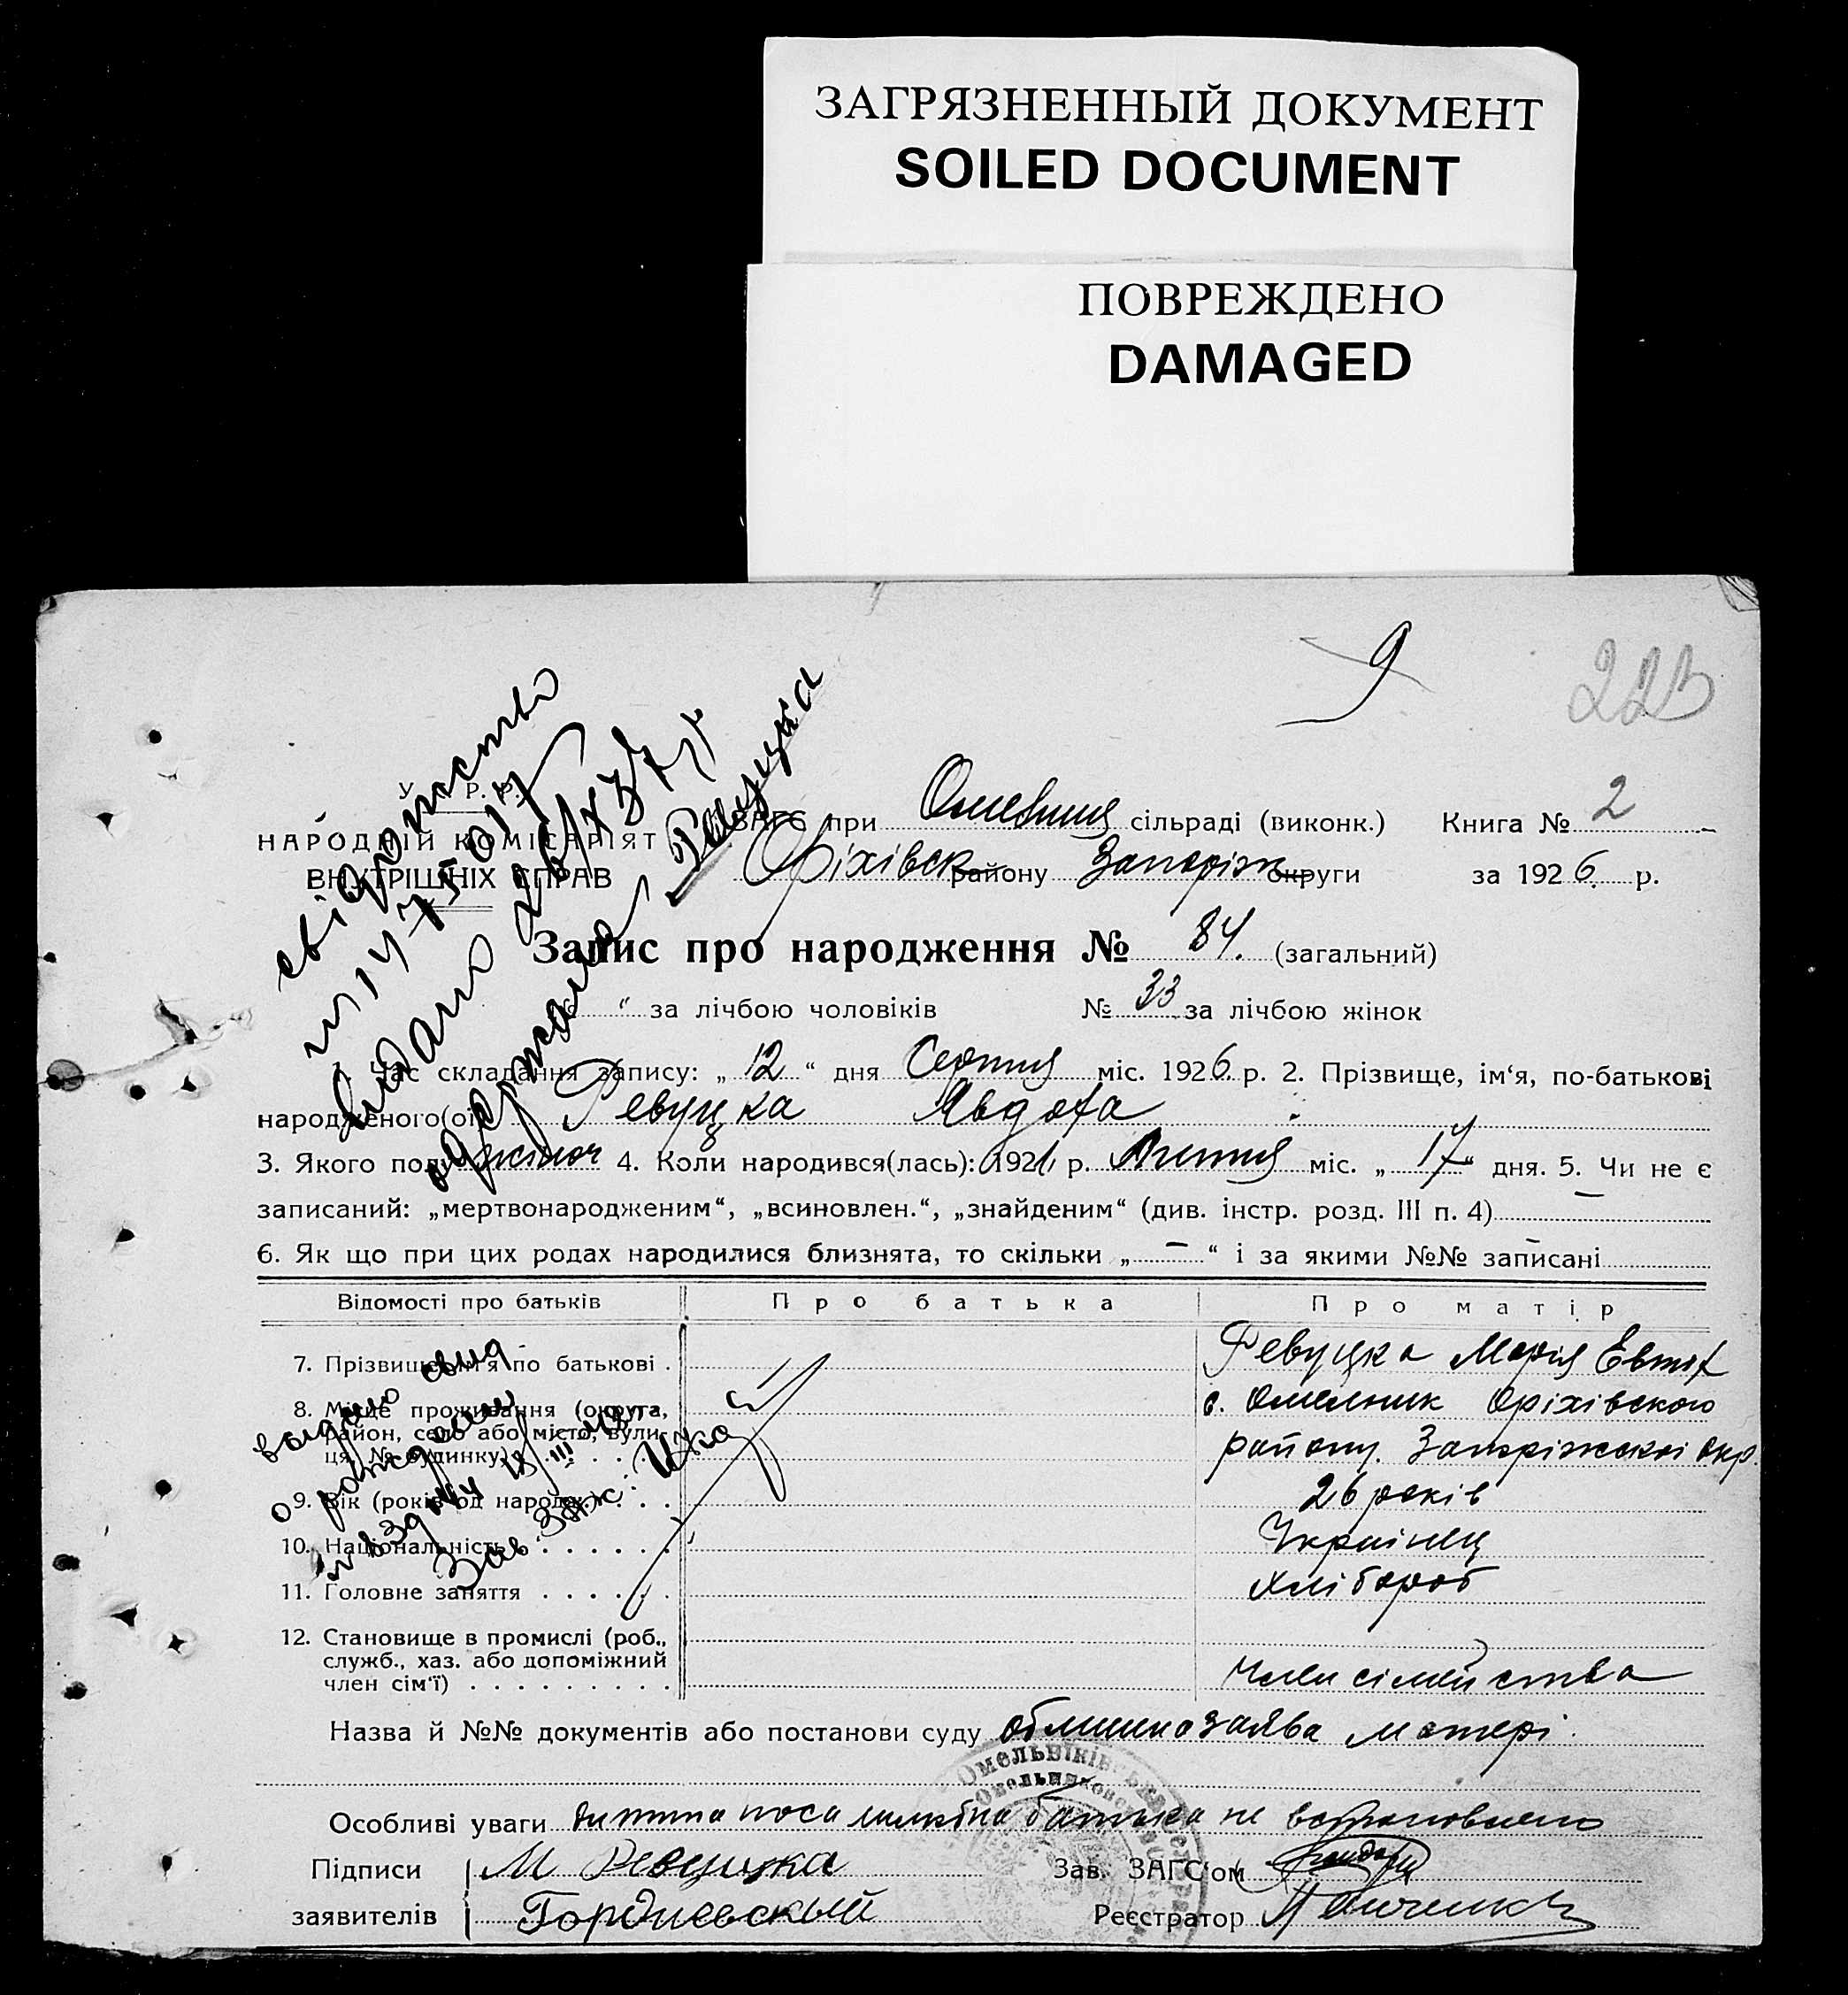 ЗАГРЯЗНЕННЫЙ ДОКУМЕНТ
SOILED DOCUMENT
ПОВРЕЖДЕНО
DAMAGED
9
223
свідотство
видано
одержала Ревуцка
У. Р. Р.
НАРОДНІЙ КОМІСАРІЯТ
ВНУТРІШНІХ СПРАВ
ЗАГС при сільраді (виконк.) Книга № 2
Оріхівск району Запоріж округи за 1926 р.
Запис про народження № 84. (загальний)
“ за лічбою чоловіків № 33 за лічбою жінок
Час складання запису: „ 12 “ дня Серпня міс. 1926. р. 2. Прізвище, ім‘я, по-батькові
народженого(ої) Ревуцка Явдоха
3. Якого полу жіноч 4. Коли народився(лась): 192 р. міс. „ 17 “ дня. 5. Чи не є
записаний: „мертвонародженим“, „всиновлен.“, „знайденим“ (див. інстр. розд. III п. 4) —
6. Як що при цих родах народилися близнята, то скільки „ — “ і за якими №№ записані —
Відомості про батьків Про батька Про матір
7. Прізвище ім‘я по батькові . Ревуцка Марія Евтих
8. Місце проживання (округа, с. Омельник Оріхівского
район, село або місто, вули-
ця, № будинку) . . . . району. Запоріжскоі окр.
9. Вік (років од народж.) . . . 26 років
10. Національність . . . . . . Украінец
11. Головне заняття . . . . . . хлібороб
12. Становище в промислі (роб.,
служб., хаз. або допоміжний
член сім‘ї) . . . . . . . . . член сімейства
видано свид
о рождении
Зав Загс:
Назва й №№ документів або постанови суду заява матері.
Омельників
Особливі уваги дитина поса батька не встановлено
Підписи М Ревуцка Зав. ЗАГС‘ом
заявителів Гордиевский Реєстратор